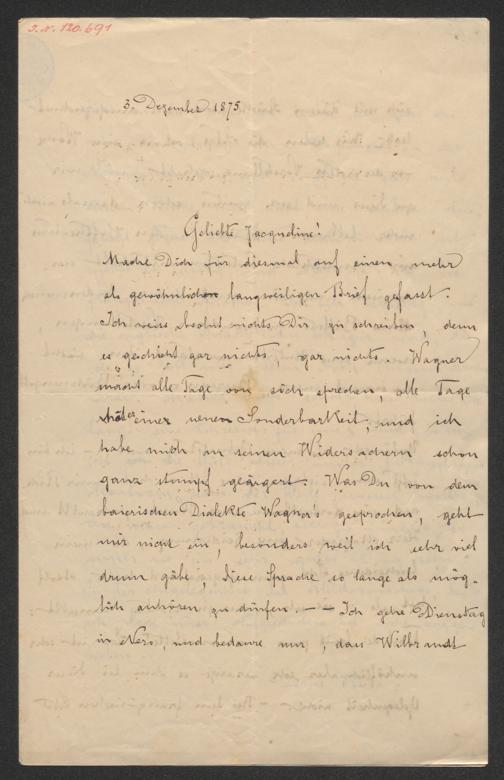 J. N. 120.691
3. Dezember 1875
Geliebte Jacqueline!
Mache Dich für diesmal auf einen mehr
als gewöhnlichen langweiligen Brief gefasst.
Ich weiss absolut nichts Dir zu schreiben, denn
es geschieht gar nichts, gar nichts. Wagner
macht alle Tage von sich sprechen, alle Tage
einer neuen Sonderbarkeit, und ich
habe mich an seinen Widersachern schon
ganz stumpf geärgert. Was Du von dem
baierischen Dialekte Wagner's gesprochen, geht
mir nicht ein, besonders weil ich sehr viel
drum gäbe, diese Sprache so lange als mög-
lich anhören zu dürfen. – – Ich gehe Dienstag
in Nero, und bedaure nur, dass Wilbrandt